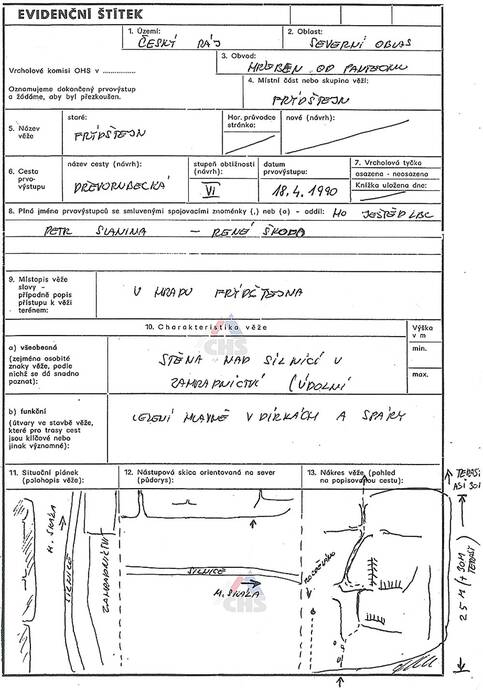 EVIDENČNÍ ŠTÍTEK
1. Území:
ČESKÝ RÁJ
2. Oblast:
SEVERNÍ OBLAS
Vrcholové komisi OHS v ................
3. Obvod:
HŘEBEN OD PANTEONU
Oznamujeme dokončený prvovýstup
a žádáme, aby byl přezkoušen.
4. Místní část nebo skupina věží:
FRÝDŠTEJN
5. Název
věže
staré:
FRÝDŠTEJN
Hor. průvodce
stránka:
nové (návrh):
6. Cesta
prvo-
výstupu
název cesty (návrh):
DŘEVORUBECKÁ
stupeň obtížnosti
(návrh):
VI
datum
prvovýstupu:
18.4.1990
7. Vrcholová tyčka
osazena - neosazena
Knížka uložena dne:
8. Plná jména prvovýstupců se smluvenými spojovacími znaménky (,) neb (a) - oddíl: HO JEŠTĚD LBC
PETR SLANINA - RENÉ ŠKODA
9. Místopis věže
slovy -
případně popis
přístupu k věži
terénem:
U HRADU FRÝDŠTEJNA
10. Charakteristika věže
Výška
v m
a) všeobecná
(zejména osobité
znaky věže, podle
nichž se dá snadno
poznat):
STĚNA NAD SILNICÍ U
ZAHRADNICTVÍ (ÚDOLNÍ
min.
max.
b) funkční
(útvary ve stavbě věže,
které pro trasy cest
jsou klíčové nebo
jinak významné):
LEZENÍ HLAVNĚ V DÍRKÁCH A SPÁRY
11. Situační plánek
(polohopis věže):
12. Nástupová skica orientovaná na sever
(půdorys):
13. Nákres věže (pohled
na popisovanou cestu):
M. SKÁLA
SILNICE
ZAHRADNICTVÍ
SILNICE
M. SKÁLA
25 M (+ 30M
TERASY
CHS
CHS